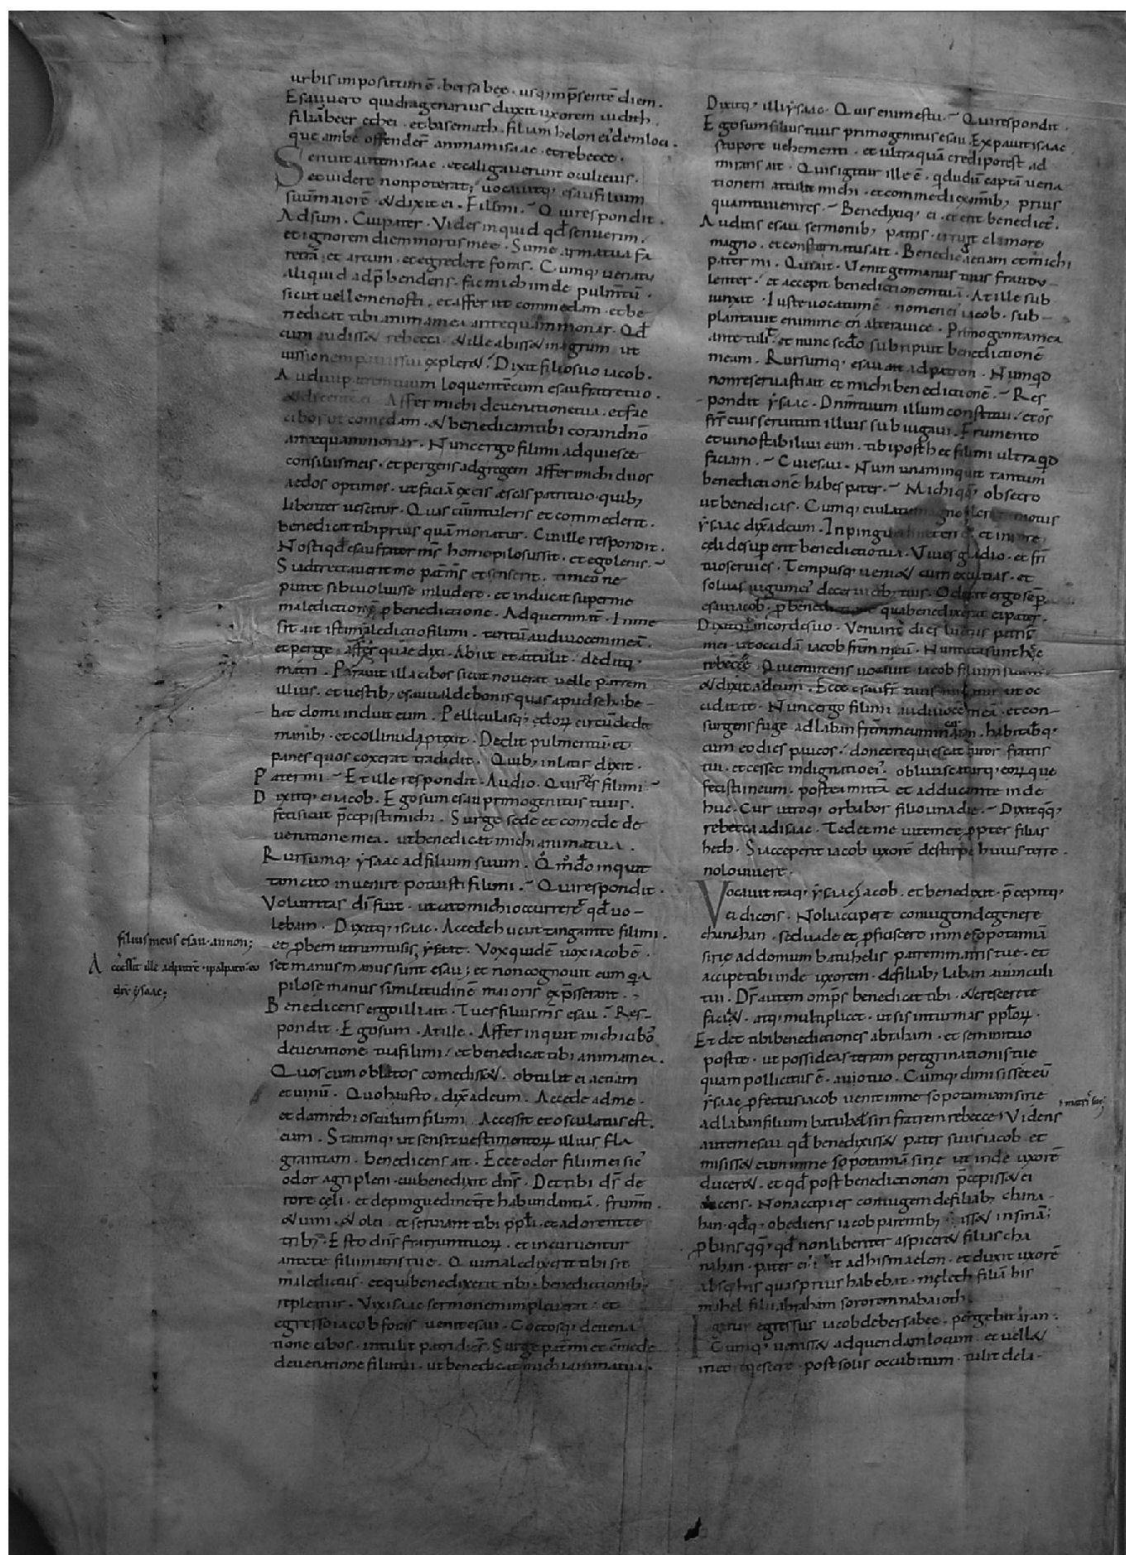 urbis impositum ē · bersabeę · usq; inp̄sentē diem .
Esau uero quadragenarius duxit uxorem iudith .
filiā beer ethei · et basemath · filiam helon eiusdem loci .
que ambe offender̄ animam isaac · et rebecce .
Senuit autem isaac · et caligauerunt oculi eius ·
et uidere non poterat; uocauitq; esau filium
suū maiorē · & dixit ei · Fili mi . Qui respondit .
Adsum . Cui pater · Vides inquid qđ senuerim .
et ignorem diem mortis mee · Sume arma tua fa
retrā; et arcum · et egredere foras . Cumq; uenatu
aliquid adp̄hendens · fac mihi inde pulmtū ·
sicut uelle me nosti · et affer ut commedam · et be
nedicat tibi anima mea antequam moriar . Qđ
cum audiss& rebecca · & ille abiss& in agrum ut
iussionem patris expler& · Dixit filio suo iacob .
Audiui patrem tuum loquentē cum esau fratre tuo .
Affer michi de uenatione tua · et fac
cibos ut comedam · & benedicam tibi coram dnō
antequam moriar . Nunc ergo fili mi adquiesce
consiliis meis · et pergens ad gregem affer mihi duos
aedos optimos · ut faciā ex eis escas patri tuo · quib;
libenter uescitur . Quas cū intuleris et commederit .
benedicat tibi prius quā moriatur . Cui ille respondit .
Nosti qđ esau frater ms̄ homo pilosus sit · et ego lenis .
Si adtrectauerit me pat ms̄ et senserit · timeo ne
putet sibi uoluisse inludere · et inducat super me
maledictionē p̄ benedictione . Ad quem mat̄ · In me
sit ait ista maledictio fili mi · tantū audi uocem meā .
et perge affer quae dixi . Abiit et attulit · deditq;
matri . Parauit illa cibos sicut nouerat uelle patrem
illius . et uestib; esau ualde bonis quas apud se habe-
bat domi induit eum . Pelliculasq; edorum circūdedit
manib; · et colli nuda p̄texit . Dedit pulmentū · et
panes quos coxerat tradidit . Quib; inlatis dixit .
Pater mi . Et ille respondit . Audio . Quis es fili mi .
Dixitq; ei iacob . Ego sum esau primogenitus tuus .
feci sicut p̄cepisti michi . Surge sede et comede de
uenatione mea . ut benedicat michi anima tua .
Rursumq; ysaac ad filium suum . Qmdo inquit
tam cito inuenire potuisti fili mi . Qui respondit .
Voluntas dī fuit · ut cito michi occurrer& qđ uo-
lebam . Dixitq; isaac . Accede huc ut tangam te fili mi .
et p̄bem utrum tu sis
filius meus esau · an non;
Accessit ille ad patrē · palpato eo
dix ysaac;
Vox quidē uox iacob ē .
set manus manus sunt esau; et non cognouit eum qa
pilose manus similitudinē maioris exp̄sserant .
Benedicens ergo illi ait . Tu es filius ms̄ esau . Res-
pondit . Ego sum . At ille . Affer inquit michi cibō
de uenatione tua fili mi · et benedicat tibi anima mea .
Quos cum oblatos comediss& · obtulit ei aetiam
et uinū . Quo hausto · dix ad eum . Accede ad me .
et da michi osculum fili mi . Accessit et osculatus est .
eum . Statimq; ut sensit uestimentorum illius fla
grantiam · benedicens ait . Ecce odor filii mei sic̄
odor agri pleni · cui benedixit dns̄ . Det tibi ds̄ de
rore cęli · et de pinguedine tr̄re habundantiā · frumti
& uini · & olei · et seruiant tibi ppli · et adorent te
trib; . Esto dns̄ fratrum tuorum · et incuruentur
ante te filii matris tue . Qui maledixerit tibi sit
maledictus · et qui benedixerit tibi · benedictionib;
repleatur . Vix isaac sermonem impleuerat · et
egresso iacob foras · uenit esau . Coctosq; de uena
tione cibos · intulit patri dicens . Surge pat̄ mi et comede
de uenatione filii tui · ut benedicat michi anima tua .
Dixitq; illi ysaac . Quis enim es tu . Qui respondit .
Ego sum filius tuus primogenitus esau . Expauit isaac
stupore uehementi · et ultra quā credi potest ad
mirans ait . Quis igitur ille ē · q dudū captā uena
tionem attulit michi · et commedi ex omnib; prius
quam tu uenires . Benedixiq; ei · et erit benedict .
Auditis esau sermonib; patris · irruit clamore
magno · et consternatus ait . Benedic aetiam et michi
pater mi . Qui ait . Venit germanus tuus fraudu-
lenter · et accepit benedictionem tuā . At ille sub
iunxit . Iuste uocatum ē · nomen ei iacob · sub-
plantauit enim me en altera uice . Primogenita mea
ante tulit · et nunc sedo subripuit benedictionē
meam . Rursumq; esau ait ad patrem . Numqd
non reseruasti ait et michi benedictionē . Res
pondit ysaac . Dnm tuum illum constitui · et om̄s
frr̄ eius seruituti illius subiugaui . Frumento
et uino stabiliui eum . tibi post hec fili mi ultra qd
faciam . Cui esau . Num unam inquit tantum
benedictionē habes pater . Michi qq; obsecro
ut benedicas . Cumq; eiulatu magno fleret · motus
ysaac dix ad eum . In pinguedine terre · et in rore
cęli desup̄ erit benedictio tua . Viues gladio · et fr̄i
tuo seruies . Tempusq; ueni& cum excutias · et
soluas iugum ei; de ceruicib; tuis . Odit ergo sep̄
esau iacob · p̄ benedictione qua benedixerat ei pater .
Dixitq; in corde suo . Veniant dies luctus patris
mei · ut occidā iacob frm̄ meū . Nuntiata sunt hec
rebecce . Que mittens uocauit iacob filium suum
& dixit ad eum . Ecce esau fr̄ tuus minatur ut oc
cidat te . Nunc ergo fili mi audi uocē mea · et con-
surgens fuge ad laban frm̄ meum in aran . habitabq;
cum eo dies paucos · donec requiescat furor fratris
tui · et cesset indignatio ei; · obliuiscaturq; eorum que
fecisti in eum . postea mittā et adducam te inde
huc . Cur utroq; orbabor filio una die . Dixitqq;
rebecca ad isaac . Tedet me uite mee p̄pter filias
heth . Si acceperit iacob uxorē de stirpe huius terre ·
nolo uiuere .
Vocauit itaq; ysaac iacob · et benedixit · p̄cepitq;
ei dicens . Noli accipere coniugem de genere
chanahan · sed uade et p̄ficiscere in mesopotamiā
sirie ad domum batuhelis patrem matris tue · et
accipe tibi inde uxorem · de filiab; laban auunculi
tui . Ds̄ autem omp̄s benedicat tibi · & crescere te
faci& · atq; multiplicet · ut sis in turmas pplorum .
Et det tibi benedictiones abraham · et semini tuo
post te · ut possideas terram peregrinationis tue
quam pollicitus ē · auo tuo . Cumq; dimisisset eū
ysaac p̄fectus iacob uenit in mesopotamiam sirie
ad laban filium batuhel siri fratrem rebecce · matris sue;
Videns
autem esau qđ benedixiss& pater suus iacob et
misiss& eum in mesopotamiā sirie ut inde uxorē
ducer& · et qđ post benedictionem p̄cepiss& ei
dicens . Non accipies coniugem de filiab; chana-
han · qdq; obediens iacob parentib; iss& in siriā;
p̄bans qq; qđ non libenter aspicer& filias cha
nahan · pater ei; · iit ad hismaelem · et duxit uxorē
absq; his quas prius habebat · melech filiā his
mahel filii abraham sororem nabaioth .
Igitur egressus iacob de bersabee · pergebat aran ·
Cumq; ueniss& ad quendam locum · et uell&
in eo requiescere · post solis occubitum · tulit de la-